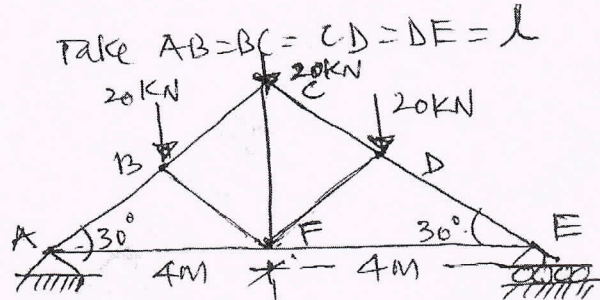 Take AB=BC=CD=DE=l
20KN
20KN
C
20KN
B
D
A
30°
F
30°
E
4M
4M